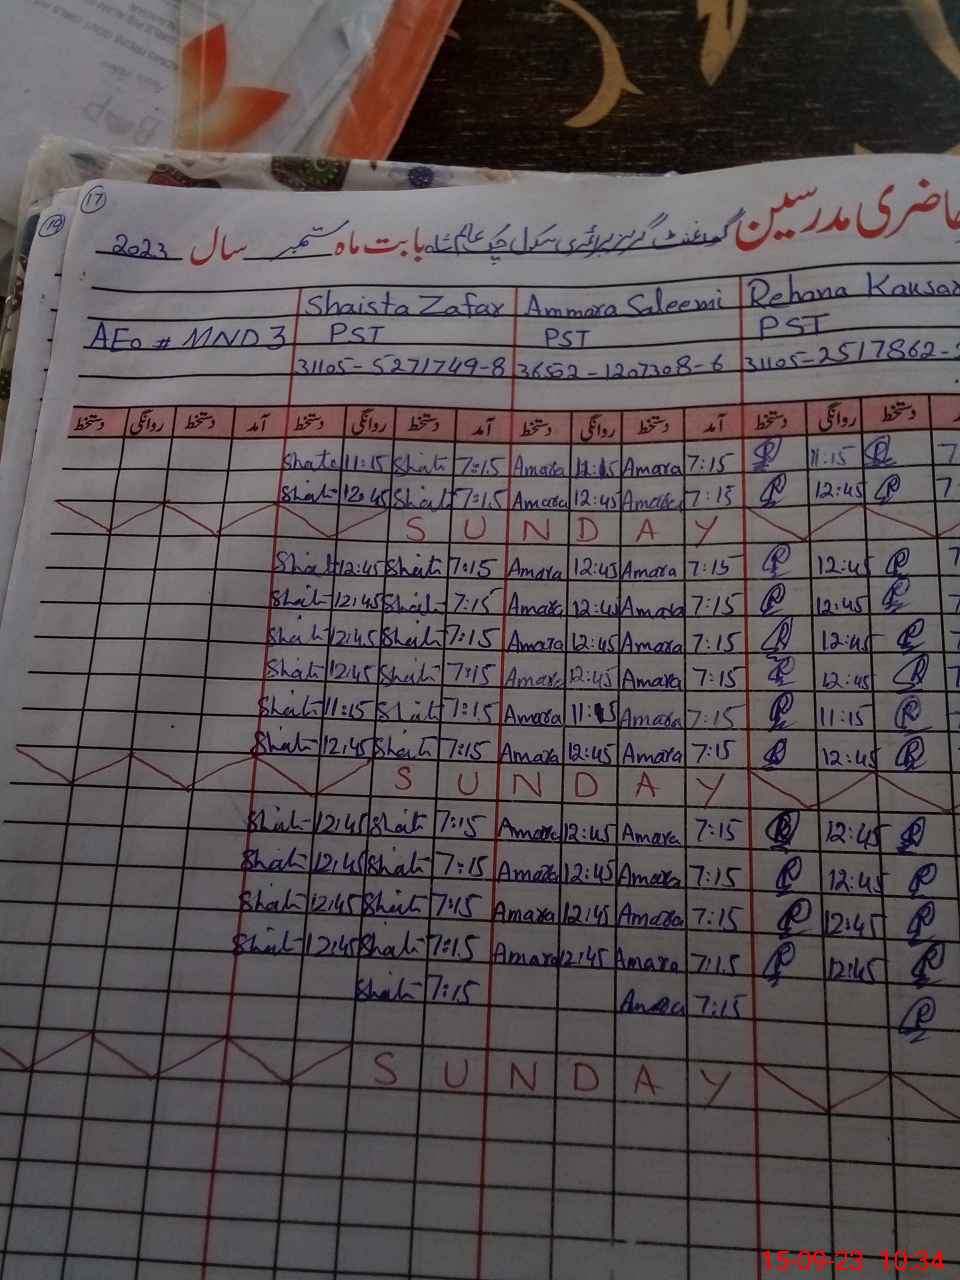 17
19
حاضری مدرسین گورنمنٹ گرلز پرائمری سکول چک عالم شاہ بابت ماہ ستمبر سال 2023
Shaista Zafar Ammara Saleemi Rehana Kausar
AEO # MND 3 PST PST PST
31105-5271749-8 36502-1207308-6 31105-2517862-
آمد دستخط روانگی دستخط آمد دستخط روانگی دستخط آمد دستخط روانگی دستخط
Shati 11:15 Shati 7:15 Amara 11:15 Amara 7:15 R 11:15 R 7
Shati 12:45 Shati 7:15 Amara 12:45 Amara 7:15 R 12:45 R 7:
S U N D A Y
Shati 12:45 Shati 7:15 Amara 12:45 Amara 7:15 R 12:45 R 7
Shati 12:45 Shati 7:15 Amara 12:45 Amara 7:15 R 12:45 R 7
Shati 12:45 Shati 7:15 Amara 12:45 Amara 7:15 R 12:45 R 7
Shati 12:45 Shati 7:15 Amara 12:45 Amara 7:15 R 12:45 R
Shati 11:15 Shati 7:15 Amara 11:15 Amara 7:15 R 11:15 R
Shati 12:45 Shati 7:15 Amara 12:45 Amara 7:15 R 12:45 R
S U N D A Y
Shati 12:45 Shati 7:15 Amara 12:45 Amara 7:15 R 12:45 R
Shati 12:45 Shati 7:15 Amara 12:45 Amara 7:15 R 12:45 R
Shati 12:45 Shati 7:15 Amara 12:45 Amara 7:15 R 12:45 R
Shati 12:45 Shati 7:15 Amara 12:45 Amara 7:15 R 12:45 R
Shati 7:15 Amara 7:15 R
S U N D A Y
15-09-23 10:34